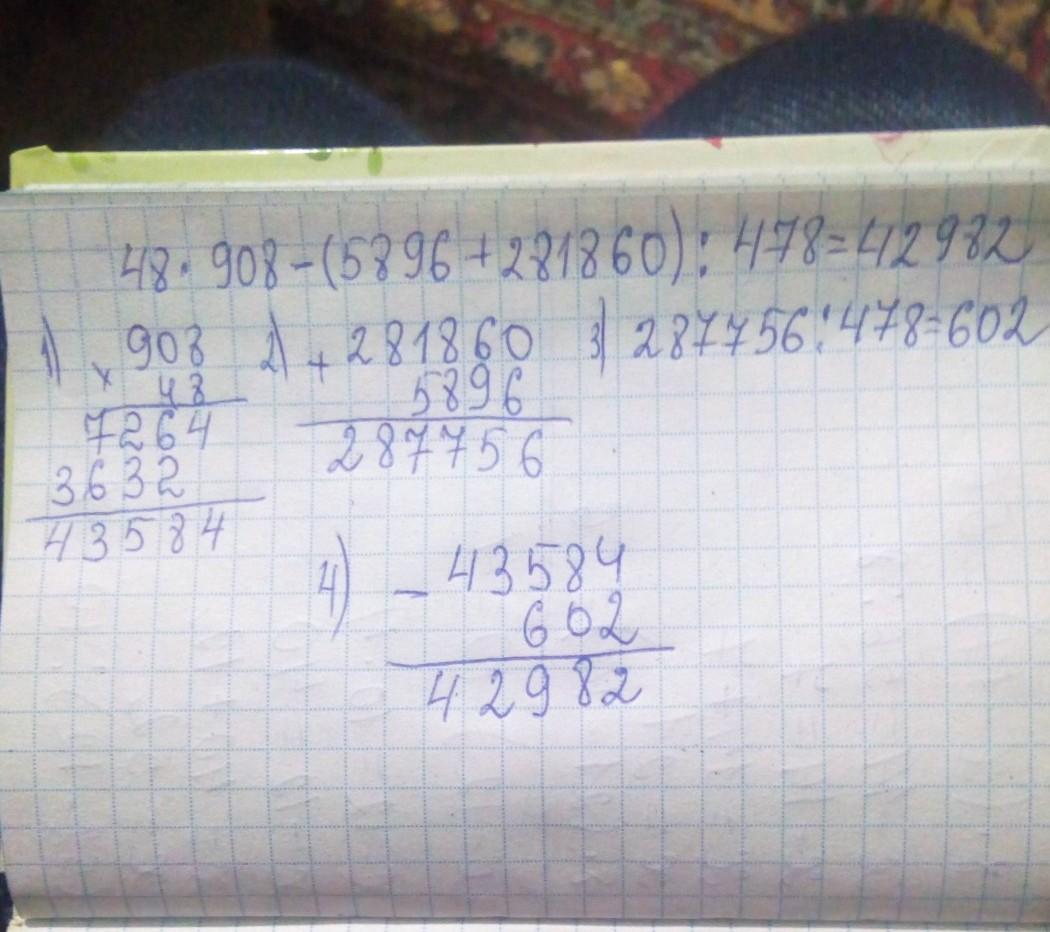 48· 908 - (5896 + 281860) : 478 = 42982
1) × 908
48
7264
3632
43584
2) + 281860
5896
287756
3) 287756 : 478 = 602
4) - 43584
602
42982